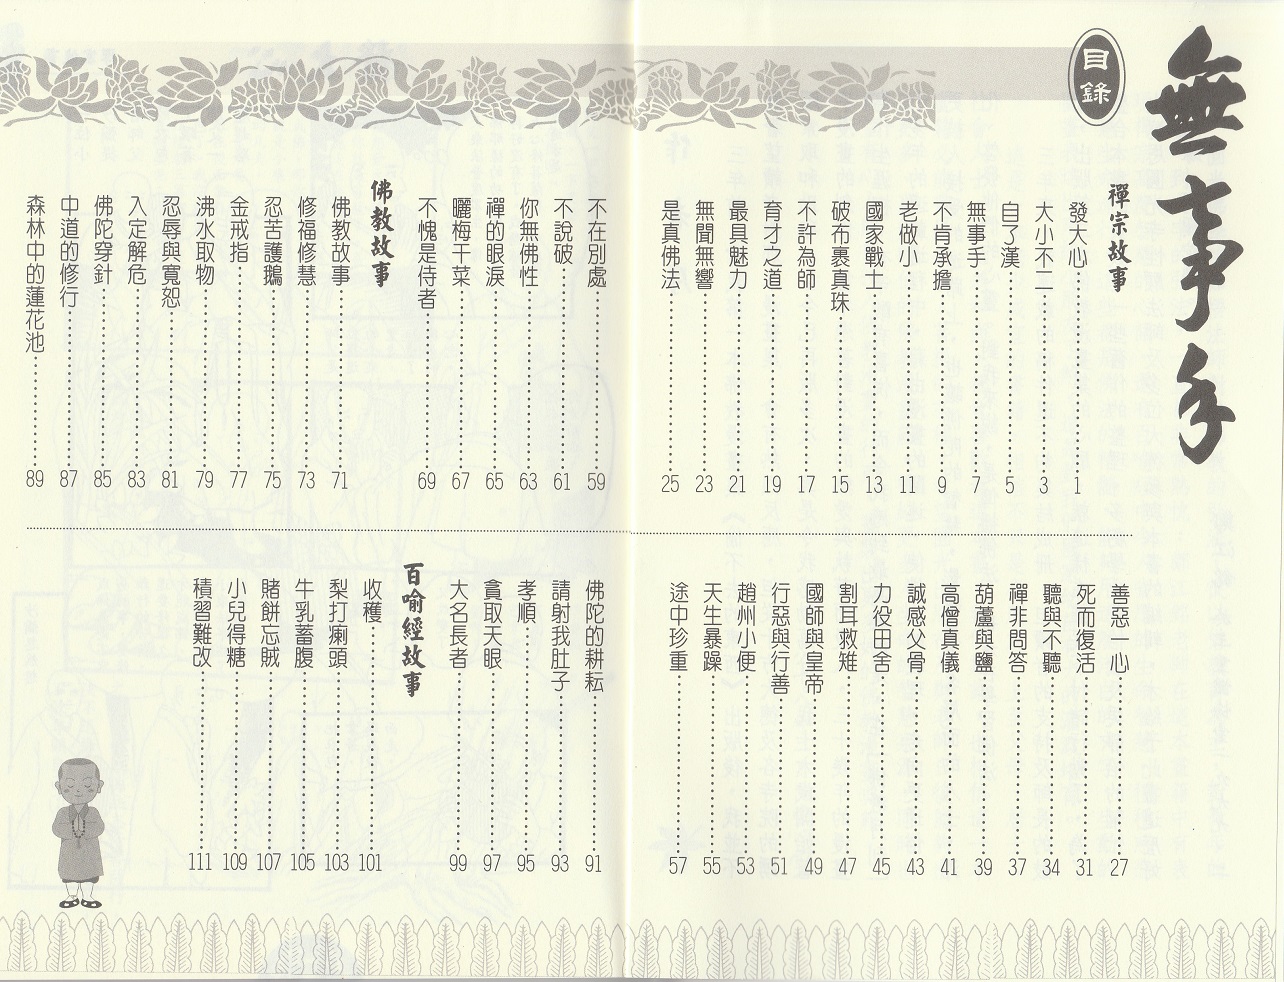 無事手
目錄
禪宗故事
發大心……1
大小不二……3
自了漢……5
無事手……7
不肯承擔……9
老做小……11
國家戰士……13
破布裹真珠……15
不許為師……17
育才之道……19
最具魅力……21
無聞無響……23
是真佛法……25
善惡一心……27
死而復活……31
聽與不聽……34
禪非問答……37
葫蘆與鹽……39
高僧真儀……41
誠感父骨……43
力役田舍……45
割耳救雉……47
國師與皇帝……49
行惡與行善……51
趙州小便……53
天生暴躁……55
途中珍重……57
不在別處……59
不說破……61
你無佛性……63
禪的眼淚……65
曬梅干菜……67
不愧是侍者……69
佛教故事
佛教故事……71
修福修慧……73
忍苦護鵝……75
金戒指……77
沸水取物……79
忍辱與寬恕……81
入定解危……83
佛陀穿針……85
中道的修行……87
森林中的蓮花池……89
佛陀的耕耘……91
請射我肚子……93
孝順……95
貪取天眼……97
大名長者……99
百喻經故事
收穫……101
梨打瘌頭……103
牛乳蓄腹……105
賭餅忘賊……107
小兒得糖……109
積習難改……111